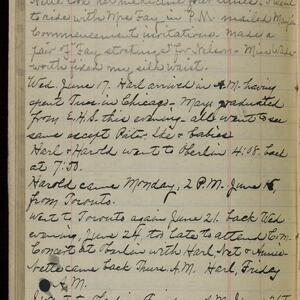 to ride with Mrs Fay in P.M. mailed May's
Commencement invitations. made a
pair of Fay stockings for Nelson - Miss Wads-
worth fixed my silk waist.
Wed. June 17. Harl arrived in A.M. having
spent Tues in Chicago - May graduated
from E.H.S this evening - all went to see
same except Pater, She & babies
Harl & Harold went to Oberlin 4:08. back
at 7:50.
Harold came Monday, 2 P.M. June
from Toronto.
Went to Toronto again June 21. back Wed
evening, June 24, too late to attend Com.
Concert at Oberlin with Harl, Net &
Nette came back Thurs. A.M. Harl, Friday
A.M.